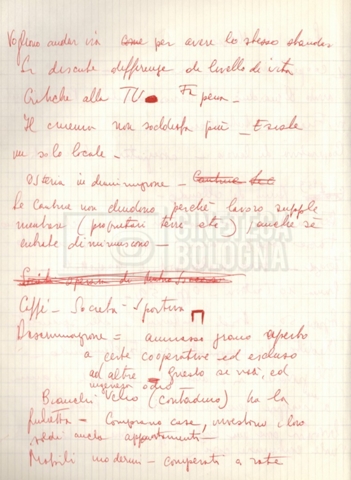 Vogliono andar via per avere lo stesso standar
Si discute differenze di livello di vita
Critiche alla TV Fa pena -
Il cinema non soddisfa più - Esiste
un solo locale -
Osteria in diminuzione -
Le cantine non chiudono perchè lavoro supple
mentare (proprietari terre etc) , anche se
entrate diminuiscono -
CINETECA
BOLOGNA
Caffè - Società - Sportiva
Discriminazione = ammasso grano aperto
a certe cooperative ed escluso
ad altre Questo si vede, ed
odio -
Bianchi Velio (contadino) ha la
- Comprano case, investono i loro
soldi anche appartamenti -
Mobili moderni - comperati a rate